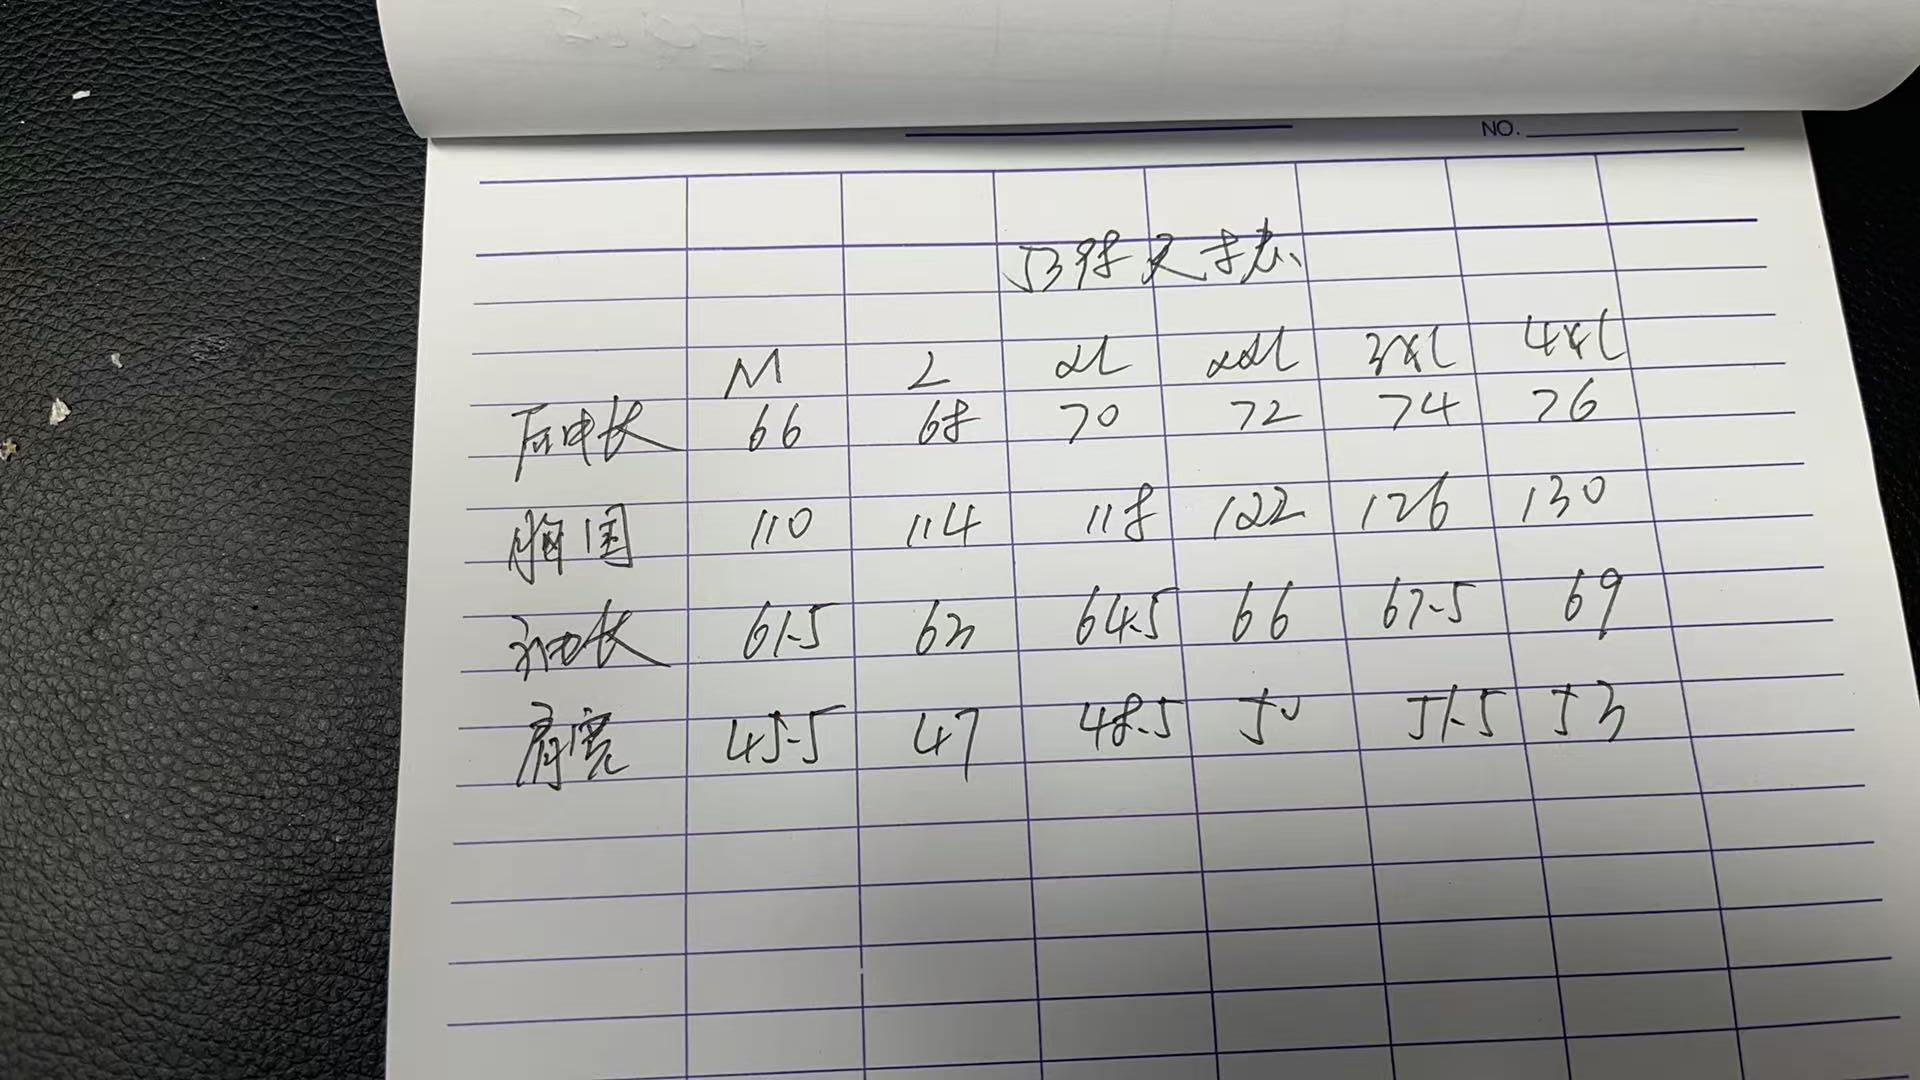 NO.
5398 尺寸表
M L XL XXL 3XL 4XL
后中长 66 68 70 72 74 76
胸围 110 114 118 122 126 130
袖长 61.5 63 64.5 66 67.5 69
肩宽 45.5 47 48.5 50 51.5 53